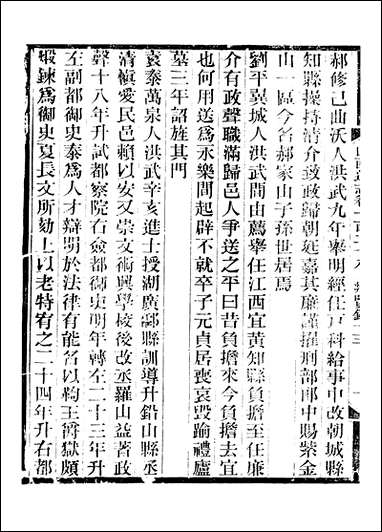 郝修己曲沃人洪武九年舉明經任戸科給事中改朝城縣
知縣操持清介致政歸朝廷嘉其廉謹擢刑部郎中賜紫金
山一區今名郝家山子孫世居焉
劉平翼城人洪武間由薦舉任江西宜黄知縣負擔至任廉
介有政聲職滿歸邑人爭送之平曰昔負擔來今負擔去宜
也何用送爲永樂間起辟不就卒子元貞居喪哀毁踰禮廬
墓三年詔旌其門
袁泰萬泉人洪武辛亥進士授湖廣酃縣訓導升鉛山縣丞
清愼愛民邑賴以安又崇文術興學校後改丞羅山益著政
聲十八年升試都察院右僉都御史明年轉左二十三年升
左副都御史泰爲人才辯明於法律有能名以鞫王爵獄頗
煅鍊爲御史夏長文所劾上以老特宥之二十四年升右都